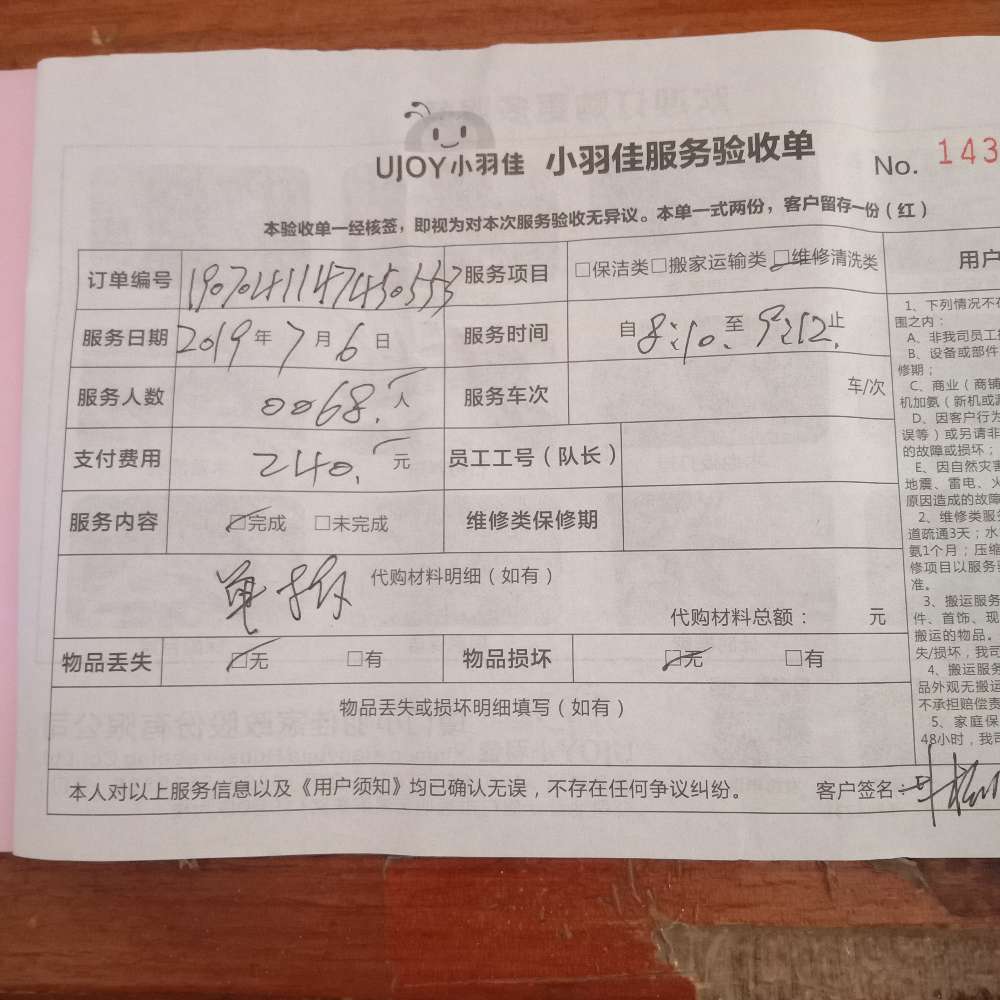 UJOY小羽佳 小羽佳服务验收单 No. 143
本验收单一经核签，即视为对本次服务验收无异议。本单一式两份，客户留存一份（红）
订单编号 190704114745055 服务项目 □保洁类□搬家运输类□维修清洗类 用户
服务日期 2019年7月6日 服务时间 自8:10.至9:12.止
服务人数 0068.人 服务车次 车/次
支付费用 240.元 员工工号（队长）
服务内容 □完成 □未完成 维修类保修期
单拆 代购材料明细（如有）
代购材料总额： 元
物品丢失 □无 □有 物品损坏 □无 □有
物品丢失或损坏明细填写（如有）
本人对以上服务信息以及《用户须知》均已确认无误，不存在任何争议纠纷。 客户签名：
1、下列情况不在
围之内：
A、非我司员工
B、设备或部件
修期；
C、商业（商铺
机加氨（新机或漏
D、因客户行为
误等）或另请非
的故障或损坏；
E、因自然灾害
地震、雷电、火
原因造成的故障
2、维修类服务
道疏通3天；水
氨1个月；压缩
修项目以服务
准。
3、搬运服务
件、首饰、现
搬运的物品。
失/损坏，我司
4、搬运服务
品外观无搬运
不承担赔偿责
5、家庭保
48小时，我司